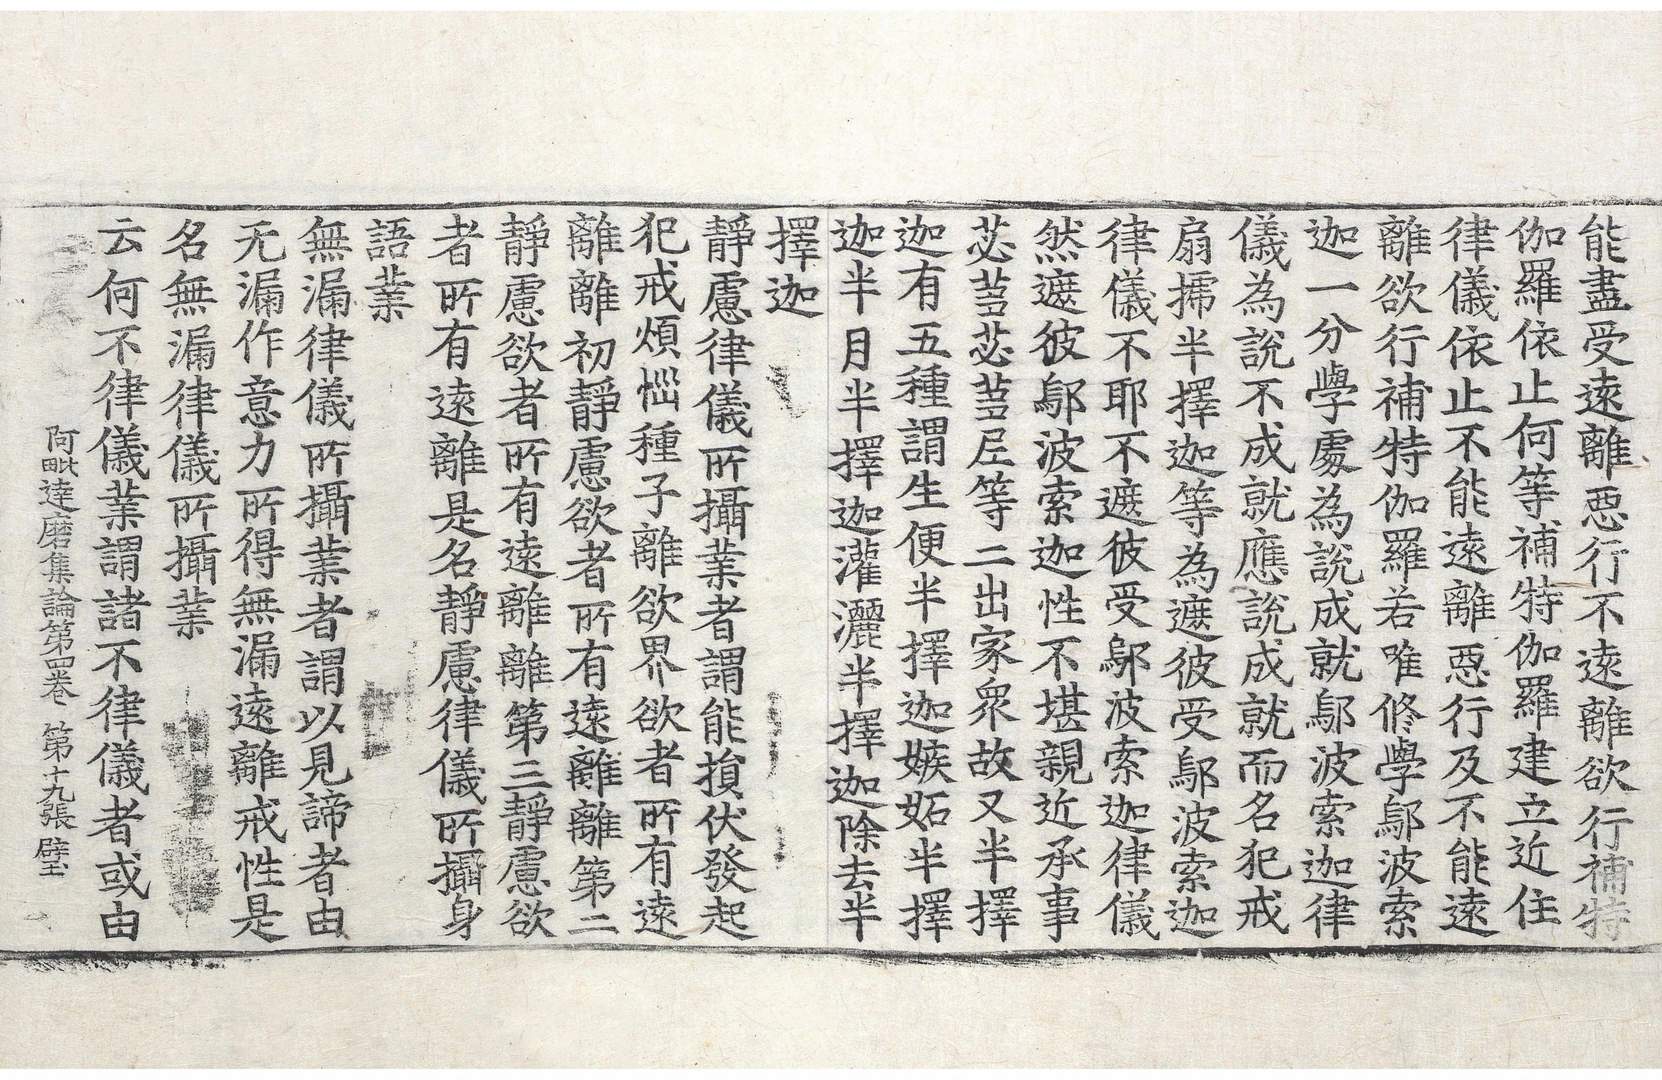 能盡受遠離惡行不遠離欲行補特
伽羅依止何等補特伽羅建立近住
律儀依止不能遠離惡行及不能遠
離欲行補特伽羅若唯修學鄔波索
迦一分學處為說成就鄔波索迦律
儀為說不成就應說成就而名犯戒
扇搋半擇迦等為遮彼受鄔波索迦
律儀不耶不遮彼受鄔波索迦律儀
然遮彼鄔波索迦性不堪親近承事
苾芻苾芻尼等二出家眾故又半擇
迦有五種謂生便半擇迦嫉妬半擇
迦半月半擇迦灌灑半擇迦除去半
擇迦
靜慮律儀所攝業者謂能損伏發起
犯戒煩惱種子離欲界欲者所有遠
離離初靜慮欲者所有遠離離第二
靜慮欲者所有遠離離第三靜慮欲
者所有遠離是名靜慮律儀所攝身
語業
無漏律儀所攝業者謂以見諦者由
无漏作意力所得無漏遠離戒性是
名無漏律儀所攝業
云何不律儀業謂諸不律儀者或由
阿毗達磨集論第四卷 第十九張 璧